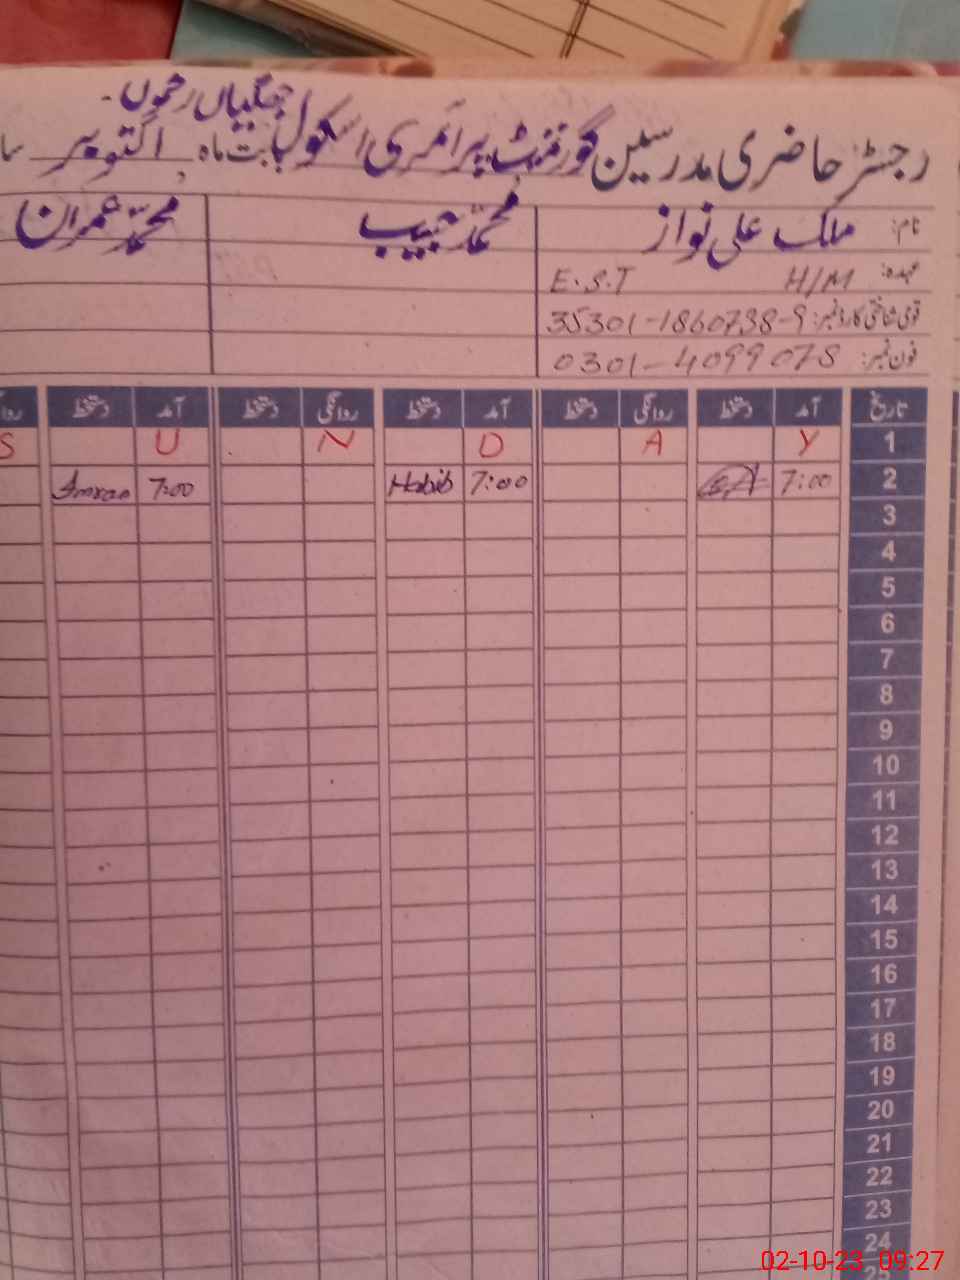 جھگیاں رحموں -
رجسٹر حاضری مدرسین گورنمنٹ پرائمری اسکول بابت ماہ اکتوبر
نام: ملک علی نواز محمد حبیب محمد عمران
عہدہ: H/M E.S.T
قومی شناختی کارڈ نمبر: 35301-1860738-9
فون نمبر: 0301-4099078
تاریخ آمد دستخط روانگی دستخط آمد دستخط روانگی دستخط آمد دستخط
1 Y A D N U S
2 7:00 7:00 Habib 7:00 Imran
3
4
5
6
7
8
9
10
11
12
13
14
15
16
17
18
19
20
21
22
23
24
25
02-10-23 09:27